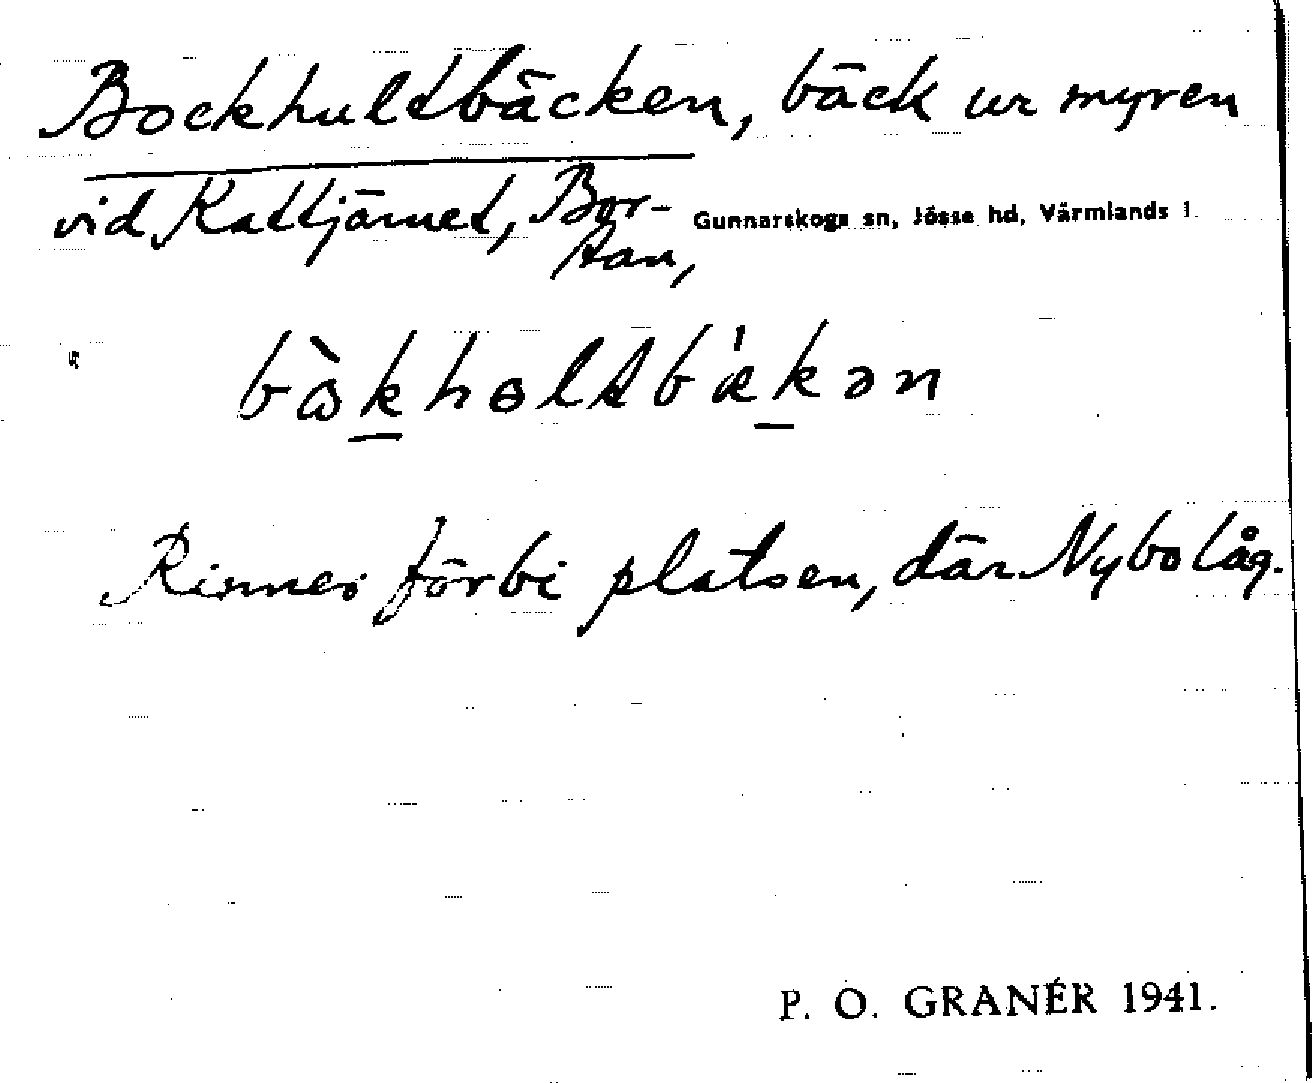 Bockhultbäcken, bäck ur myren
vid Kattjärnet, Bor-
tan,
Gunnarskogs sn, Jösse hd, Värmlands l.
bòkhɵltbǽkən
Rinner förbi platsen, där Nybo låg.
P. O. GRANÉR 1941.